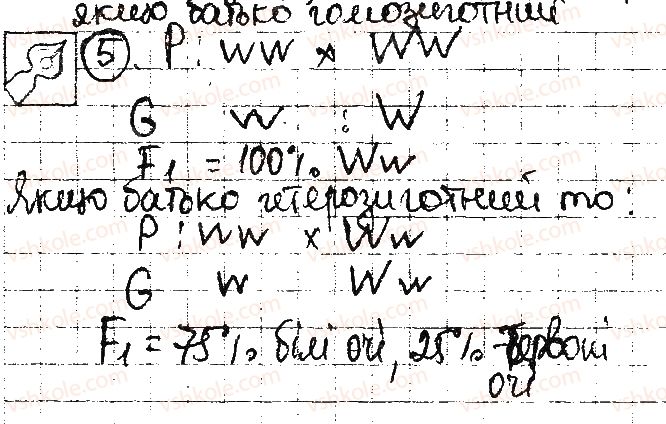 якщо батько гомозиготний
5. P: ww × WW
G w : W
F₁ = 100% Ww
Якщо батько гетерозиготний то:
P : ww × Ww
G w W w
F₁ = 75% білі очі, 25% червоні
очі